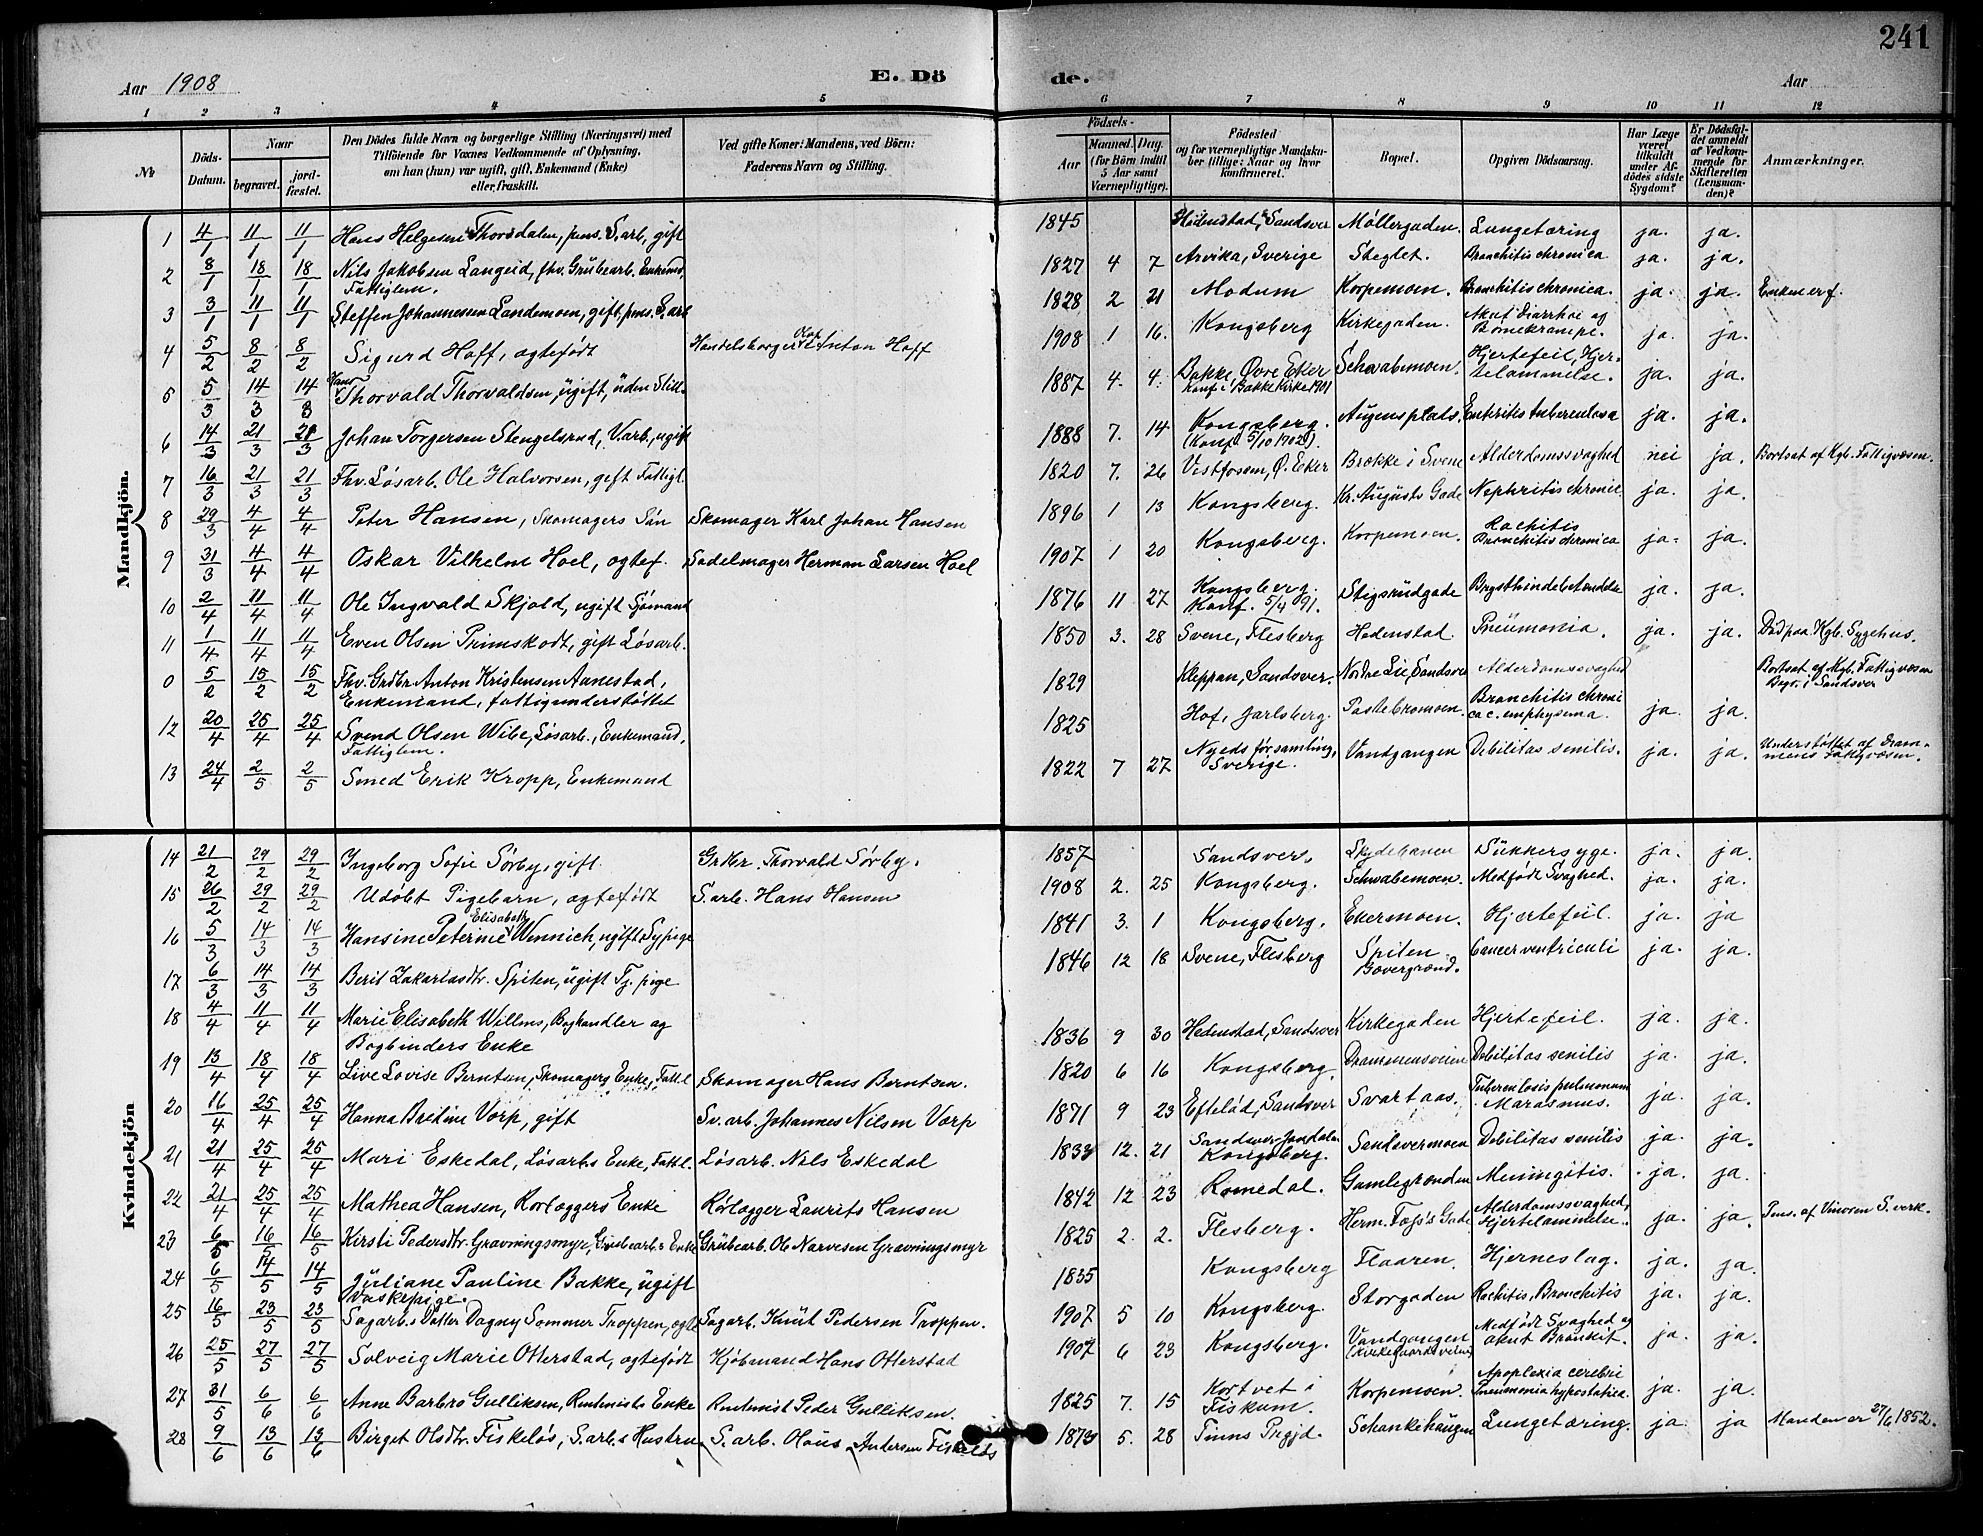 241
Aar 1908 E. Dö de. Aar
1 2 3 4 5 6 7 8 9 10 11 12
№ Döds-Datum. Naar begravet. jordfæstet. Den Dödes fulde Navn og borgerlige Stilling (Næringsvei) med Tilföiende for Voxnes Vedkommende af Oplysning, om han (hun) var ugift, gift, Enkemand (Enke) eller fraskilt. Ved gifte Koner: Mandens, ved Börn: Faderens Navn og Stilling. Födsels- Aar Maaned. Dag. (for Börn indtil 5 Aar samt Værnepligtige). Födested og for værnepligtige Mandskaber tillige: Naar og hvor konfirmeret. Bopæl. Opgiven Dödsaarsag. Har Læge været tilkaldt under Afdödes sidste Sygdom? Er Dödsfaldet anmeldt af Vedkommende for Skifteretten (Lensmanden)? Anmærkninger.
Mandkjön.
1 4/1 11/1 11/1 Hans Helgesen Thorsdalen, pens. S.arb, gift 1845 Hedenstad, Sandsver Møllergaden. Lungetæring ja. ja.
2 8/1 18/1 18/1 Nils Jakobsen Langeid, fhv. Grubearb. Enkemd. Fattiglem. 1827 4 7 Arvika, Sverige Steglet. Bronchitis chronica ja. ja.
3 3/1 11/1 11/1 Steffen Johannessen Landemoen, gift, pens. S.arb 1828 2 21 Modum Korpemoen. Bronchitis chronica. ja. ja. Enken er f.
4 5/2 8/2 8/2 Sigurd Hoff, ægtefødt Handelsborger Olaf Anton Hoff 1908 1 16. Kongsberg Kirkegaden. Akut Diarrhoe og Børnekrampe. ja. ja.
5 5/3 14/3 14/3 Hans Thorvald Thorvaldsen, ugift, uden Still. 1887 4. 4. Bakke, Øvre Eker Konf. i Bakke Kirke 1901 Schwabemoen. Hjertefeil, Hjertelammelse. ja. ja.
6 14/3 21/3 21/3 Johan Torgersen Stengelsrud, V.arb., ugift 1888 7. 14 Kongsberg. (Konf. 5/10 1902). Augensplads. Enteritis tuberculosa ja. ja.
7 16/3 21/3 21/3 Fhv. Løsarb. Ole Halvorsen, gift Fattigl. 1820 7. 26 Vestfossen, Ø. Eker Brække i Svene Alderdomssvaghed nei ja. Bortsat af Kgb. Fattigvæsen.
8 29/3 4/4 4/4 Peter Hansen, Skomagers Søn Skomager Karl Johan Hansen 1896 1 13 Kongsberg. Kr. Augusts Gade Nephritis chronic ja. ja.
9 31/3 4/4 4/4 Oskar Vilhelm Hoel, ægtef. Sadelmager Herman Larsen Hoel 1907 1 20 Kongsberg. Korpemoen. Rachitis Bronchitis chronica ja. ja.
10 2/4 11/4 11/4 Ole Ingvald Skjold, ugift Sjømand 1876 11 27 Kongsberg. Konf. 5/4 91. Stigsrudgade Brysthindebetændelse ja. ja.
11 1/4 11/4 11/4 Even Olsen Primskodt, gift Løsarb. 1850 3. 28 Svene, Flesberg Hedenstad Pneumonia. ja. ja. Død paa Kgb. Sygehus.
0 5/2 15/2 15/2 Fhv. Grdbr. Anton Kristensen Aanestad, Enkemand, fattigunderstøttet 1829 Kleppan, Sandsver. Nordre Lie, Sandsver Alderdomssvaghed Bortsat af Kgb. Fattigvæsen Begr. i Sandsver
12 20/4 25/4 25/4 Svend Olsen Wibe, Løsarb., Enkemand, Fattiglem. 1825 Hof, Jarlsberg. Pastebromoen. Bronchitis chronica c. emphysema. ja. ja.
13 24/4 2/5 2/5 Smed Erik Kropp, Enkemand 1822 7 27 Nyeds forsamling, Sverige. Vandgangen Debilitas senilis. ja. ja. Understøttet af Drammens Fattigvæsen.
Kvindekjön
14 21/2 29/2 29/2 Ingeborg Sofie Sørby, gift. Grdbr. Thorvald Sørby. 1857 Sandsver. Skydebanen Sukkersyge. ja. ja.
15 26/2 29/2 29/2 Udøbt Pigebarn, ægtefødt S.arb. Hans Hansen 1908 2. 25 Kongsberg. Schwabemoen. Medfødt Svaghed. ja. ja.
16 5/3 14/3 14/3 Hansine Peterine Elisabeth Wennich, ugift Sypige 1841 3. 1 Kongsberg. Ekermoen. Hjertefeil. ja. ja
17 6/3 14/3 14/3 Berit Zakariasdtr. Spiten, ugift Tj. pige 1846 12 18 Svene, Flesberg Spiten Bævergrænd. Cancer ventriculi ja. ja.
18 4/4 11/4 11/4 Marie Elisabeth Willms, Boghandler og Bogbinders Enke 1836 9 30 Hedenstad, Sandsver Kirkegaden Hjertefeil. ja. ja.
19 13/4 18/4 18/4 Live Lovise Berntsen, Skomagers Enke, Fatt.l Skomager Hans Berntsen. 1820 6 16 Kongsberg. Drammensveien Debilitas senilis ja. ja.
20 16/4 25/4 25/4 Hanna Bertine Vorp, gift Sv. arb. Johannes Nilsen Vorp 1871 9 23 Efteløt, Sandsver Svartaas. Tuberculosis pulmonum Marasmus. ja. ja.
21 21/4 25/4 25/4 Mari Eskedal, Løsarb.s Enke, Fatt.l. Løsarb. Nils Eskedal 1833 12. 21 Sandsver Kongsberg. Sandsvermoen Debilitas senilis ja. ja.
22 21/4 25/4 25/4 Mathea Hansen, Rorlæggers Enke Rørlægger Laurits Hansen 1842 12 23 Romedal. Gamlegrænden Meningitis. ja. ja.
23 6/5 16/5 16/5 Kirsti Pedersdtr. Gravningsmyr, Grubearb.s Enke Grubearb. Ole Narvesen Gravningsmyr 1825 2. 2. Flesberg. Herm. Foss's Gade Alderdomssvaghed, Hjertelammelse. ja. ja. Pens. af Vinoren S. verk.
24 6/5 14/5 14/5 Juliane Pauline Bakke, ugift Vaskepige. 1835 Kongsberg Flaaren. Hjerneslag. ja. ja.
25 16/5 23/5 23/5 Sagarb.s Datter Dagny Sommer Troppen, ægte Sagarb. Knut Pedersen Troppen. 1907 5 10 Kongsberg. Storgaden Rachitis, Bronchitis ja. ja.
26 25/5 27/5 27/5 Solveig Marie Otterstad, ægtefødt Kjøbmand Hans Otterstad 1907 6 23 Kongsberg. Vandgangen (Kirkegaardsveien) Medfødt Svaghed og akut Bronkit. ja. ja.
27 31/5 6/6 6/6 Anne Barbro Gulliksen, Rentenists Enke Rentenist Peder Gulliksen. 1825 7. 15 Kortvet i Fiskum. Korpemoen. Apoplexia cerebri Pneumonia hypostatica. ja. ja.
28 9/6 13/6 13/6 Birget Olsdtr. Fiskeløs, S.arb.s Hustru S. arb. Olaus Andersen Fiskeløs 1873 5. 28 Tinns Prgjd. Schankehaugen Lungetæring. ja. ja Manden er 27/6 1852.